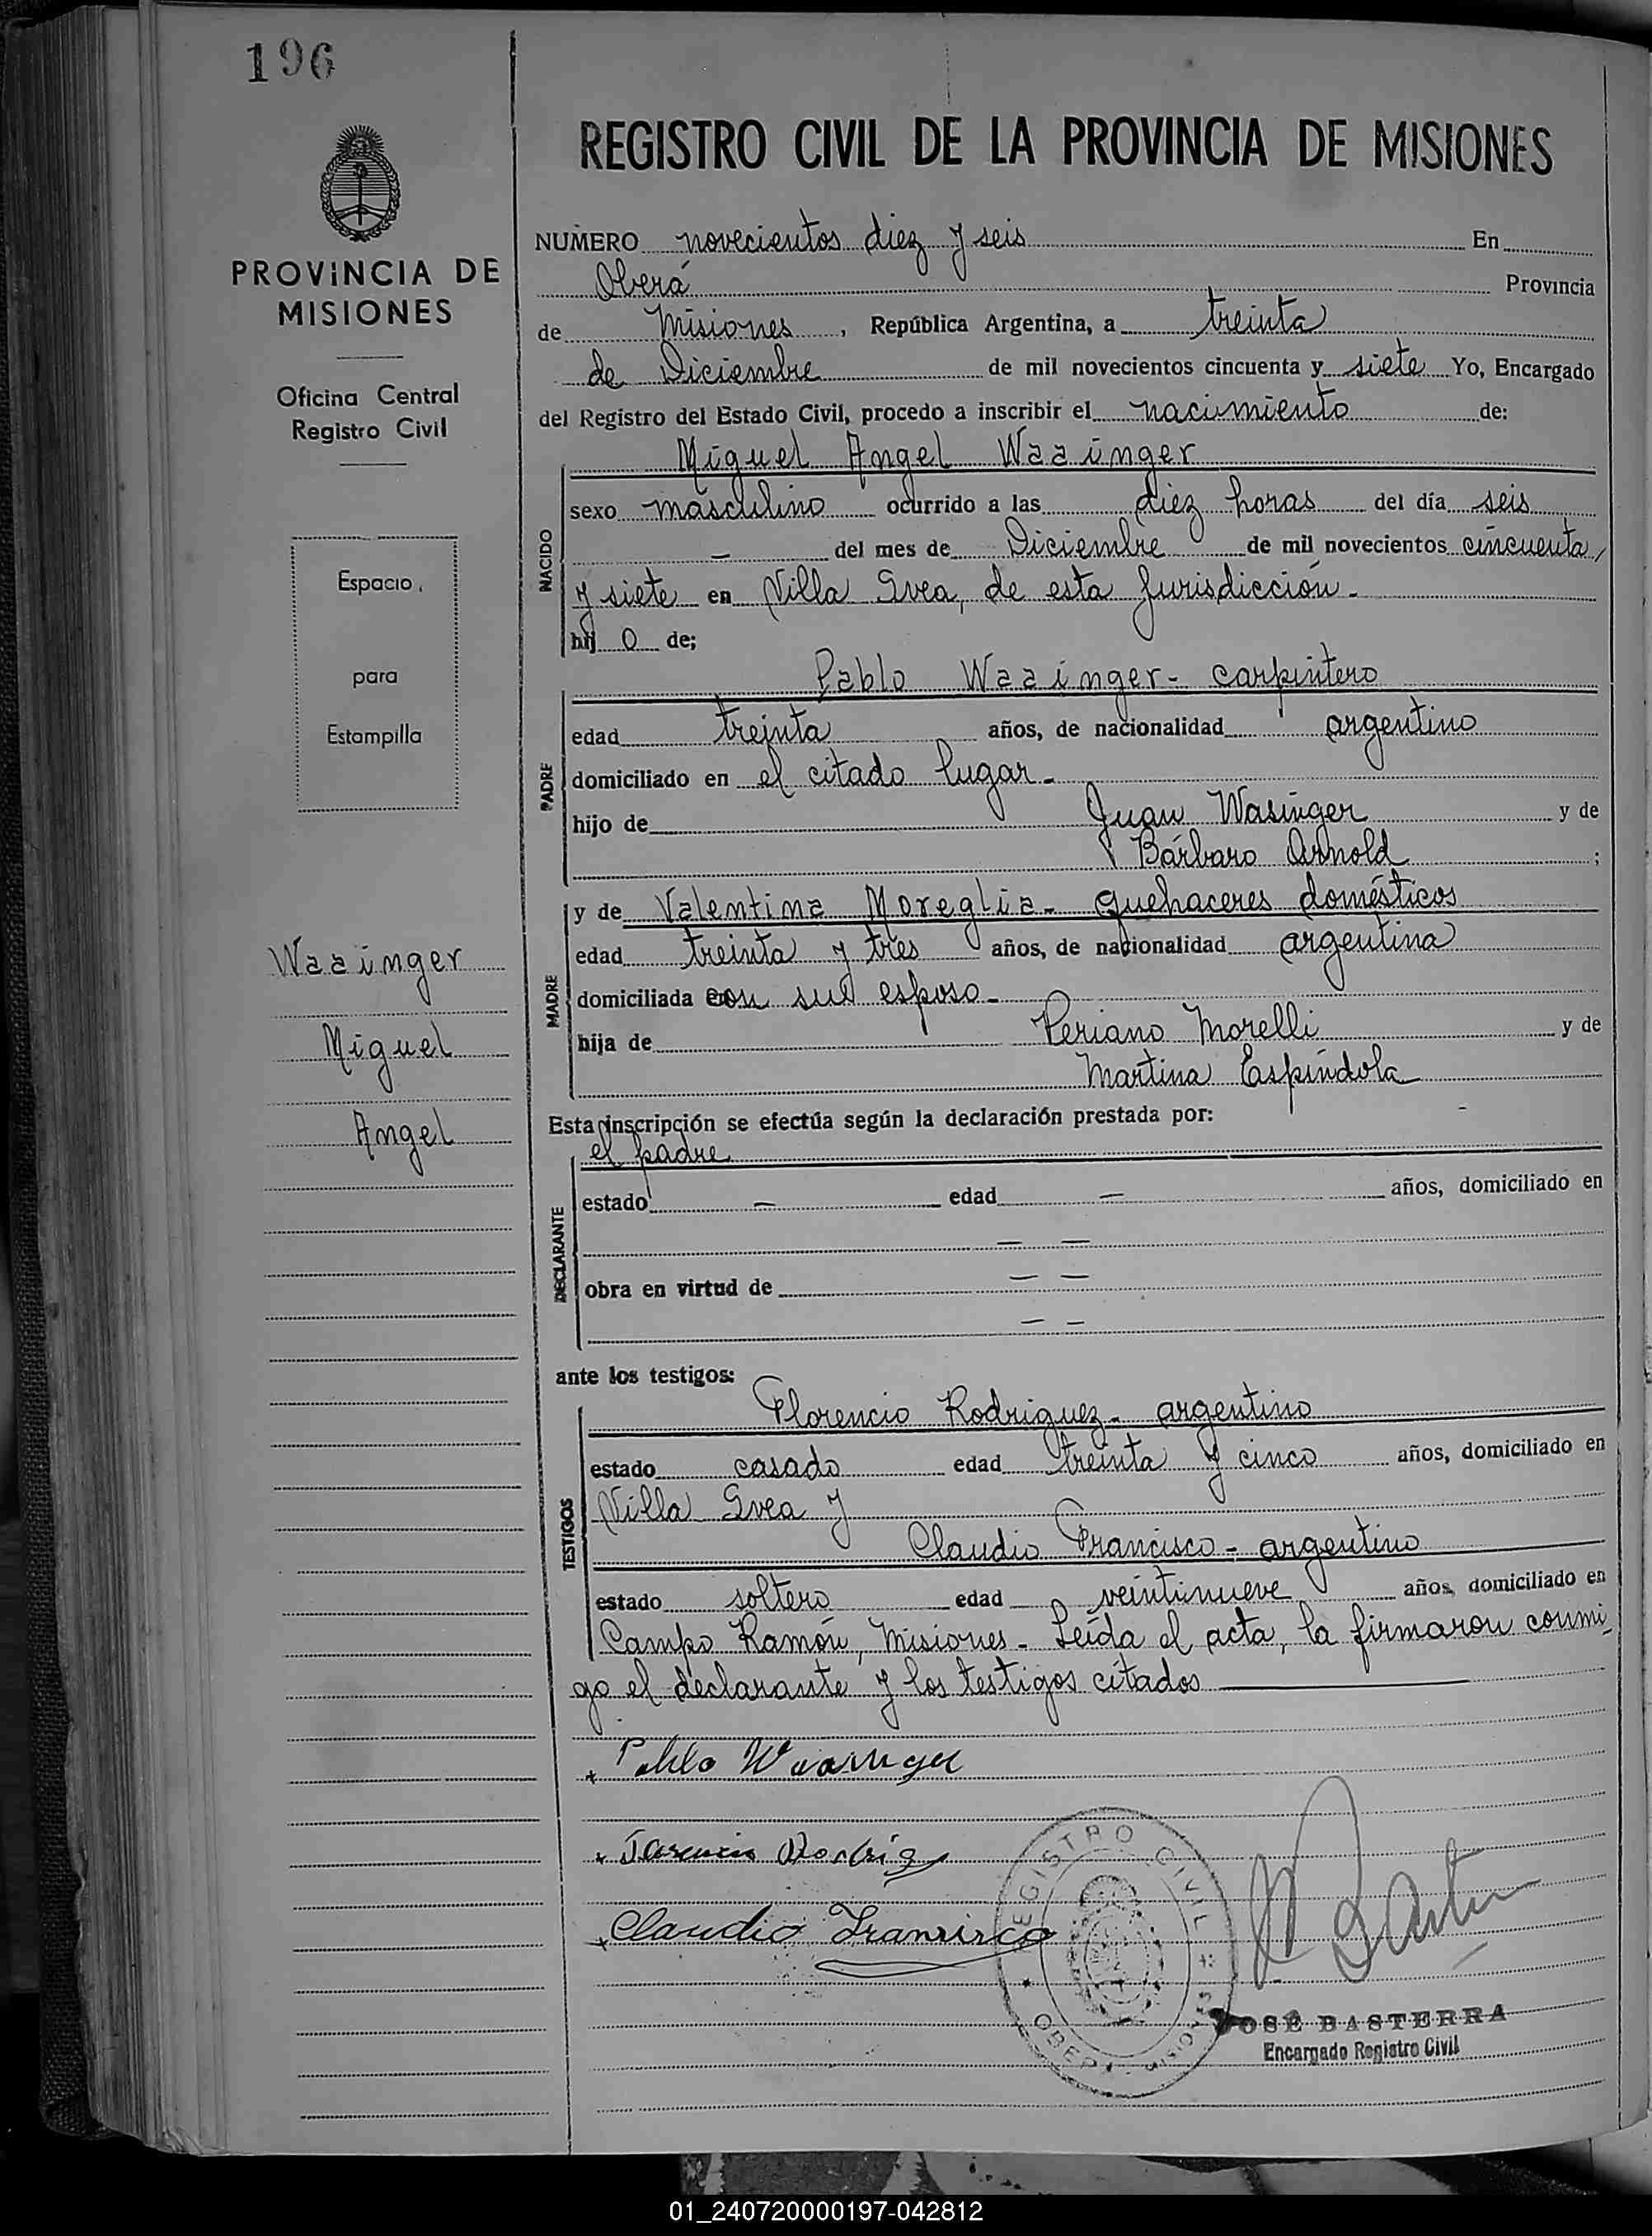 196
REGISTRO CIVIL DE LA PROVINCIA DE MISIONES
PROVINCIA DE
MISIONES
Oficina Central
Registro Civil
Espacio
para
Estampilla
Waainger
Miguel
Angel
NUMERO novecientos diez y seis En
Oberá Provincia
de Misiones, República Argentina, a treinta
de Diciembre de mil novecientos cincuenta y siete Yo, Encargado
del Registro del Estado Civil, procedo a inscribir el nacimiento de:
Miguel Angel Waainger
NACIDO
sexo masculino ocurrido a las diez horas del día seis
— del mes de Diciembre de mil novecientos cincuenta
y siete en Villa Svea, de esta Jurisdicción.
hij o de;
Pablo Waainger - carpintero
PADRE
edad treinta años, de nacionalidad argentino
domiciliado en el citado lugar -
hijo de Juan Wasinger y de
Bárbara Arnold ;
y de Valentina Moreglia - quehaceres domésticos
MADRE
edad treinta y tres años, de nacionalidad argentina
domiciliada con sud esposo -
hija de Periano Morelli y de
Martina Espíndola
Esta inscripción se efectúa según la declaración prestada por:
el padre
DECLARANTE
estado — edad — años, domiciliado en
— —
obra en virtud de — —
— —
ante los testigos:
Florencio Rodriguez - argentino
TESTIGOS
estado casado edad treinta y cinco años, domiciliado en
Villa Svea y
Claudio Francisco - argentino
estado soltero edad veintinueve años, domiciliado en
Campo Ramón, Misiones - Leída el acta, la firmaron conmi
go el declarante y los testigos citados
Pablo Waainger
Claudio Francisco
REGISTRO CIVIL
OBERA MISIONES
JOSÉ BASTERRA
Encargado Registro Civil
01_240720000197-042812